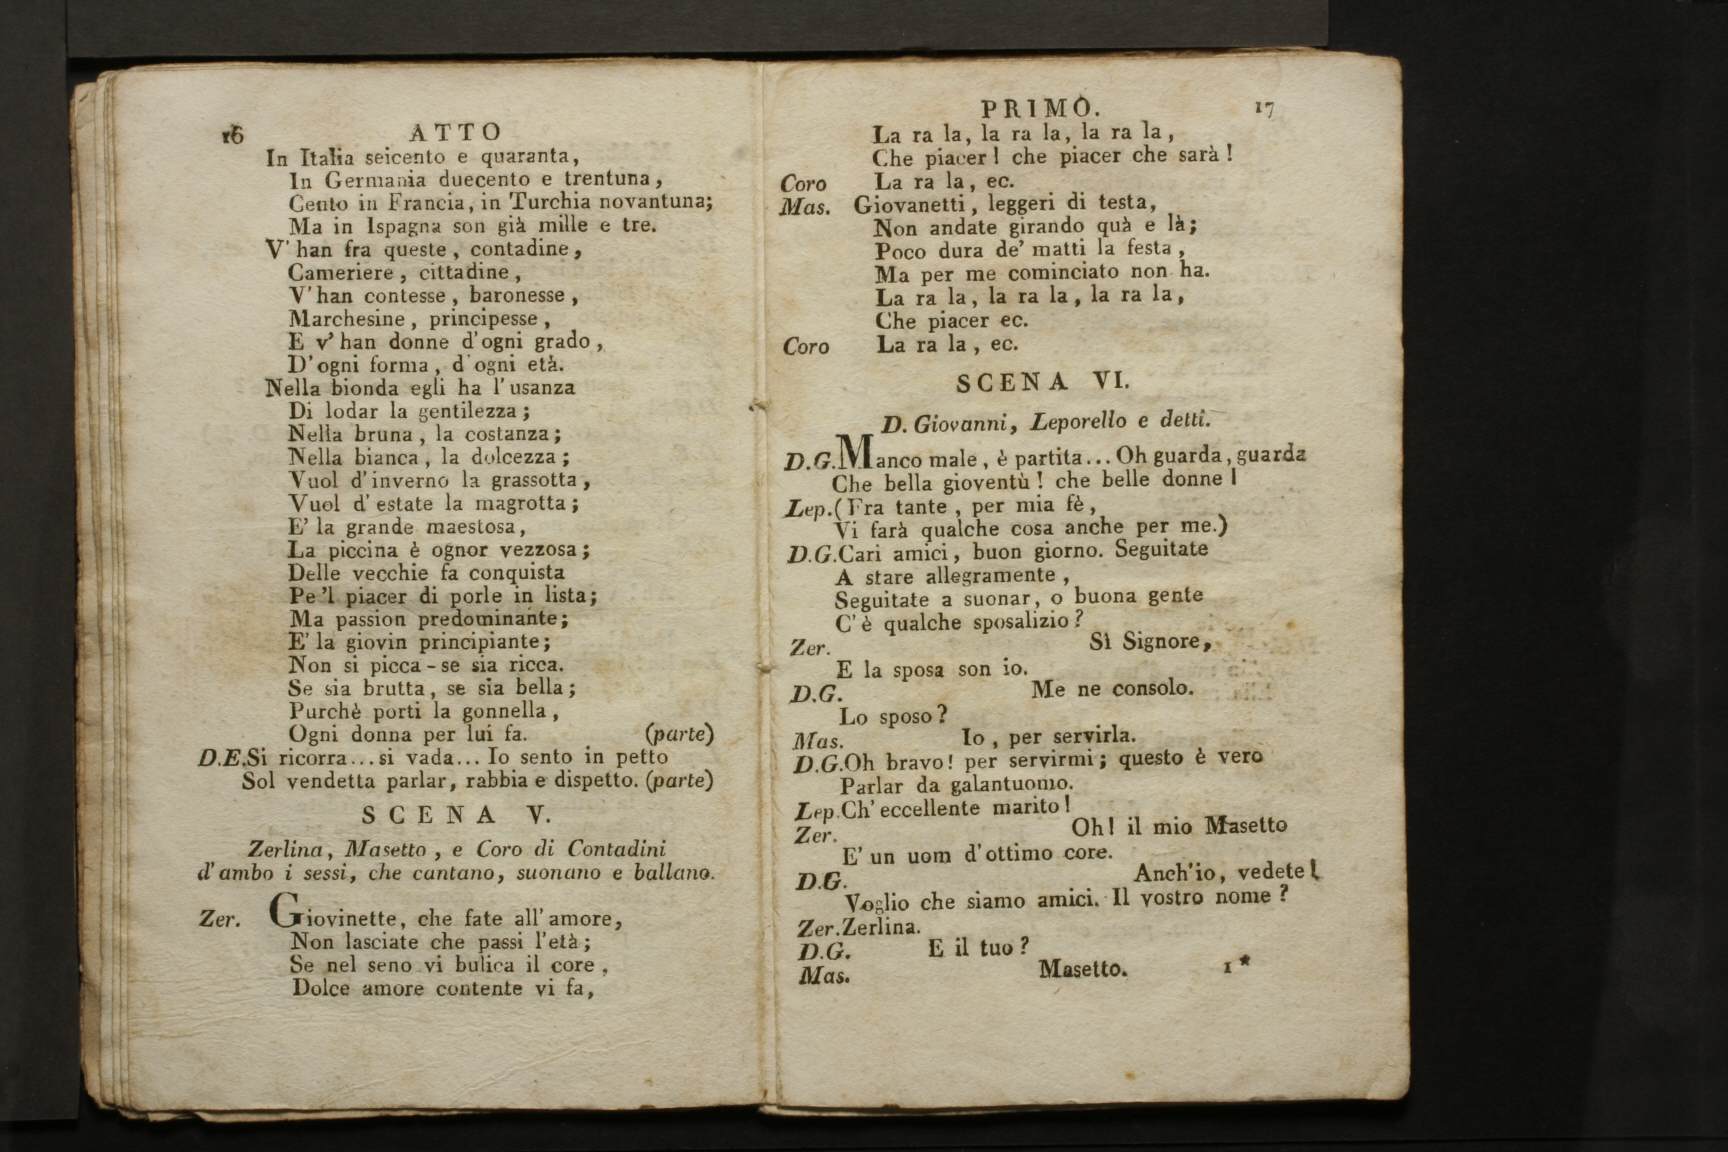 16 ATTO
In Italia seicento e quaranta,
In Germania duecento e trentuna,
Cento in Francia, in Turchia novantuna;
Ma in Ispagna son già mille e tre.
V' han fra queste, contadine,
Cameriere, cittadine,
V'han contesse, baronesse,
Marchesine, principesse,
E v' han donne d'ogni grado,
D'ogni forma, d'ogni età.
Nella bionda egli ha l'usanza
Di lodar la gentilezza;
Nella bruna, la costanza;
Nella bianca, la dolcezza;
Vuol d'inverno la grassotta,
Vuol d'estate la magrotta;
E' la grande maestosa,
La piccina è ognor vezzosa;
Delle vecchie fa conquista
Pe 'l piacer di porle in lista;
Ma passion predominante;
E' la giovin principiante;
Non si picca - se sia ricca.
Se sia brutta, se sia bella;
Purchè porti la gonnella,
Ogni donna per lui fa. (parte)
D.E.Si ricorra...si vada... Io sento in petto
Sol vendetta parlar, rabbia e dispetto. (parte)
SCENA V.
Zerlina, Masetto, e Coro di Contadini
d'ambo i sessi, che cantano, suonano e ballano.
Zer. Giovinette, che fate all'amore,
Non lasciate che passi l'età;
Se nel seno vi bulica il core,
Dolce amore contente vi fa,
PRIMO. 17
La ra la, la ra la, la ra la,
Che piacer! che piacer che sarà!
Coro La ra la, ec.
Mas. Giovanetti, leggeri di testa,
Non andate girando quà e là;
Poco dura de' matti la festa,
Ma per me cominciato non ha.
La ra la, la ra la, la ra la,
Che piacer ec.
Coro La ra la, ec.
SCENA VI.
D. Giovanni, Leporello e detti.
D.G.Manco male, è partita... Oh guarda, guarda
Che bella gioventù! che belle donne!
Lep.(Fra tante, per mia fè,
Vi farà qualche cosa anche per me.)
D.G.Cari amici, buon giorno. Seguitate
A stare allegramente,
Seguitate a suonar, o buona gente
C'è qualche sposalizio?
Zer. Sì Signore,
E la sposa son io.
D.G. Me ne consolo.
Lo sposo?
Mas. Io, per servirla.
D.G.Oh bravo! per servirmi; questo è vero
Parlar da galantuomo.
Lep.Ch'eccellente marito!
Zer. Oh! il mio Masetto
E' un uom d'ottimo core.
D.G. Anch'io, vedete!
Voglio che siamo amici. Il vostro nome?
Zer.Zerlina.
D.G. E il tuo?
Mas. Masetto. 1*